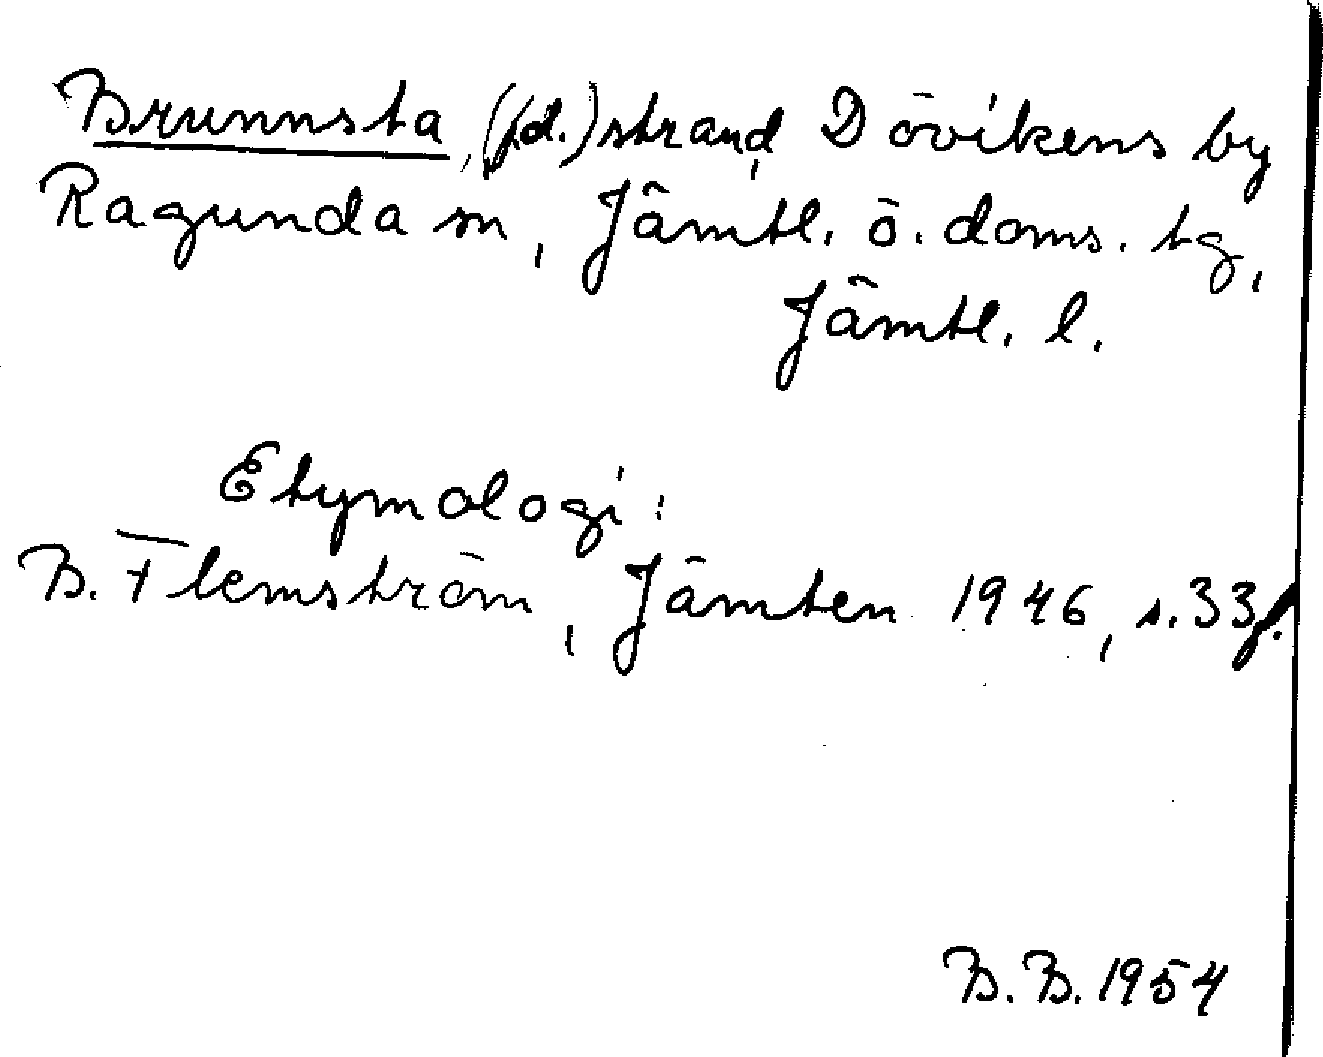 Brunnsta, (f.d.) strand, Dövikens by
Ragunda sn, Jämtl. ö. doms. tg,
Jämtl. l.
Etymologi:
B. Flemström, Jämten 1946, s. 33f.
B. B. 1954